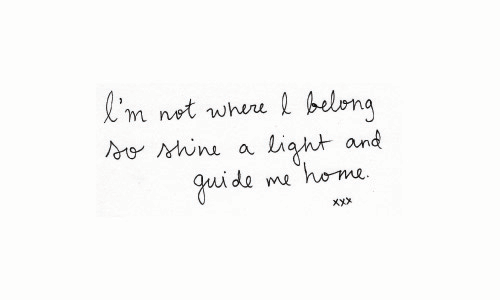 I'm not where I belong
so shine a light and
guide me home.
xxx